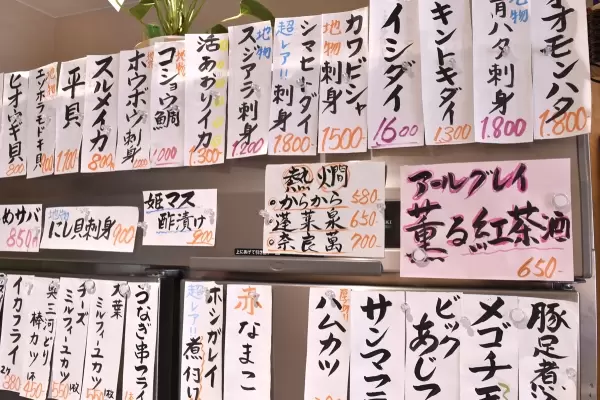 オオモンハタ
1.800
地物
青ハタ刺身
1.800
キントキダイ
1.300
イシダイ
1600
カワビシャ
地物
刺身
1500
シマヒーダイ
超レア!!
刺身
1800
スジアラ刺身
地物
1200
活あおりイカ
1.300
地物
コショウ鯛
1000
ホウボウ刺身
スルメイカ
800
平貝
1100
地物
エゾボラモドキ貝
ヒオウギ貝
800
めサバ
850円
地物
にし貝刺身
900
姫マス
酢漬け
900
熱燗
・からから 580
・蓬莱泉 650
・奈良萬 700
アールグレイ
薫る紅茶酒
650-
豚足煮
メゴチ天
ビックあじフ
サンマフ
ハムカツ
赤なまこ
ホシガレイ
超レア!!
煮付け
つなぎ串フライ
大葉
ミルフィーユカツ
550
チーズ
ミルフィーユカツ
550
奥三河どり
棒カツ
450
イカフライ
380